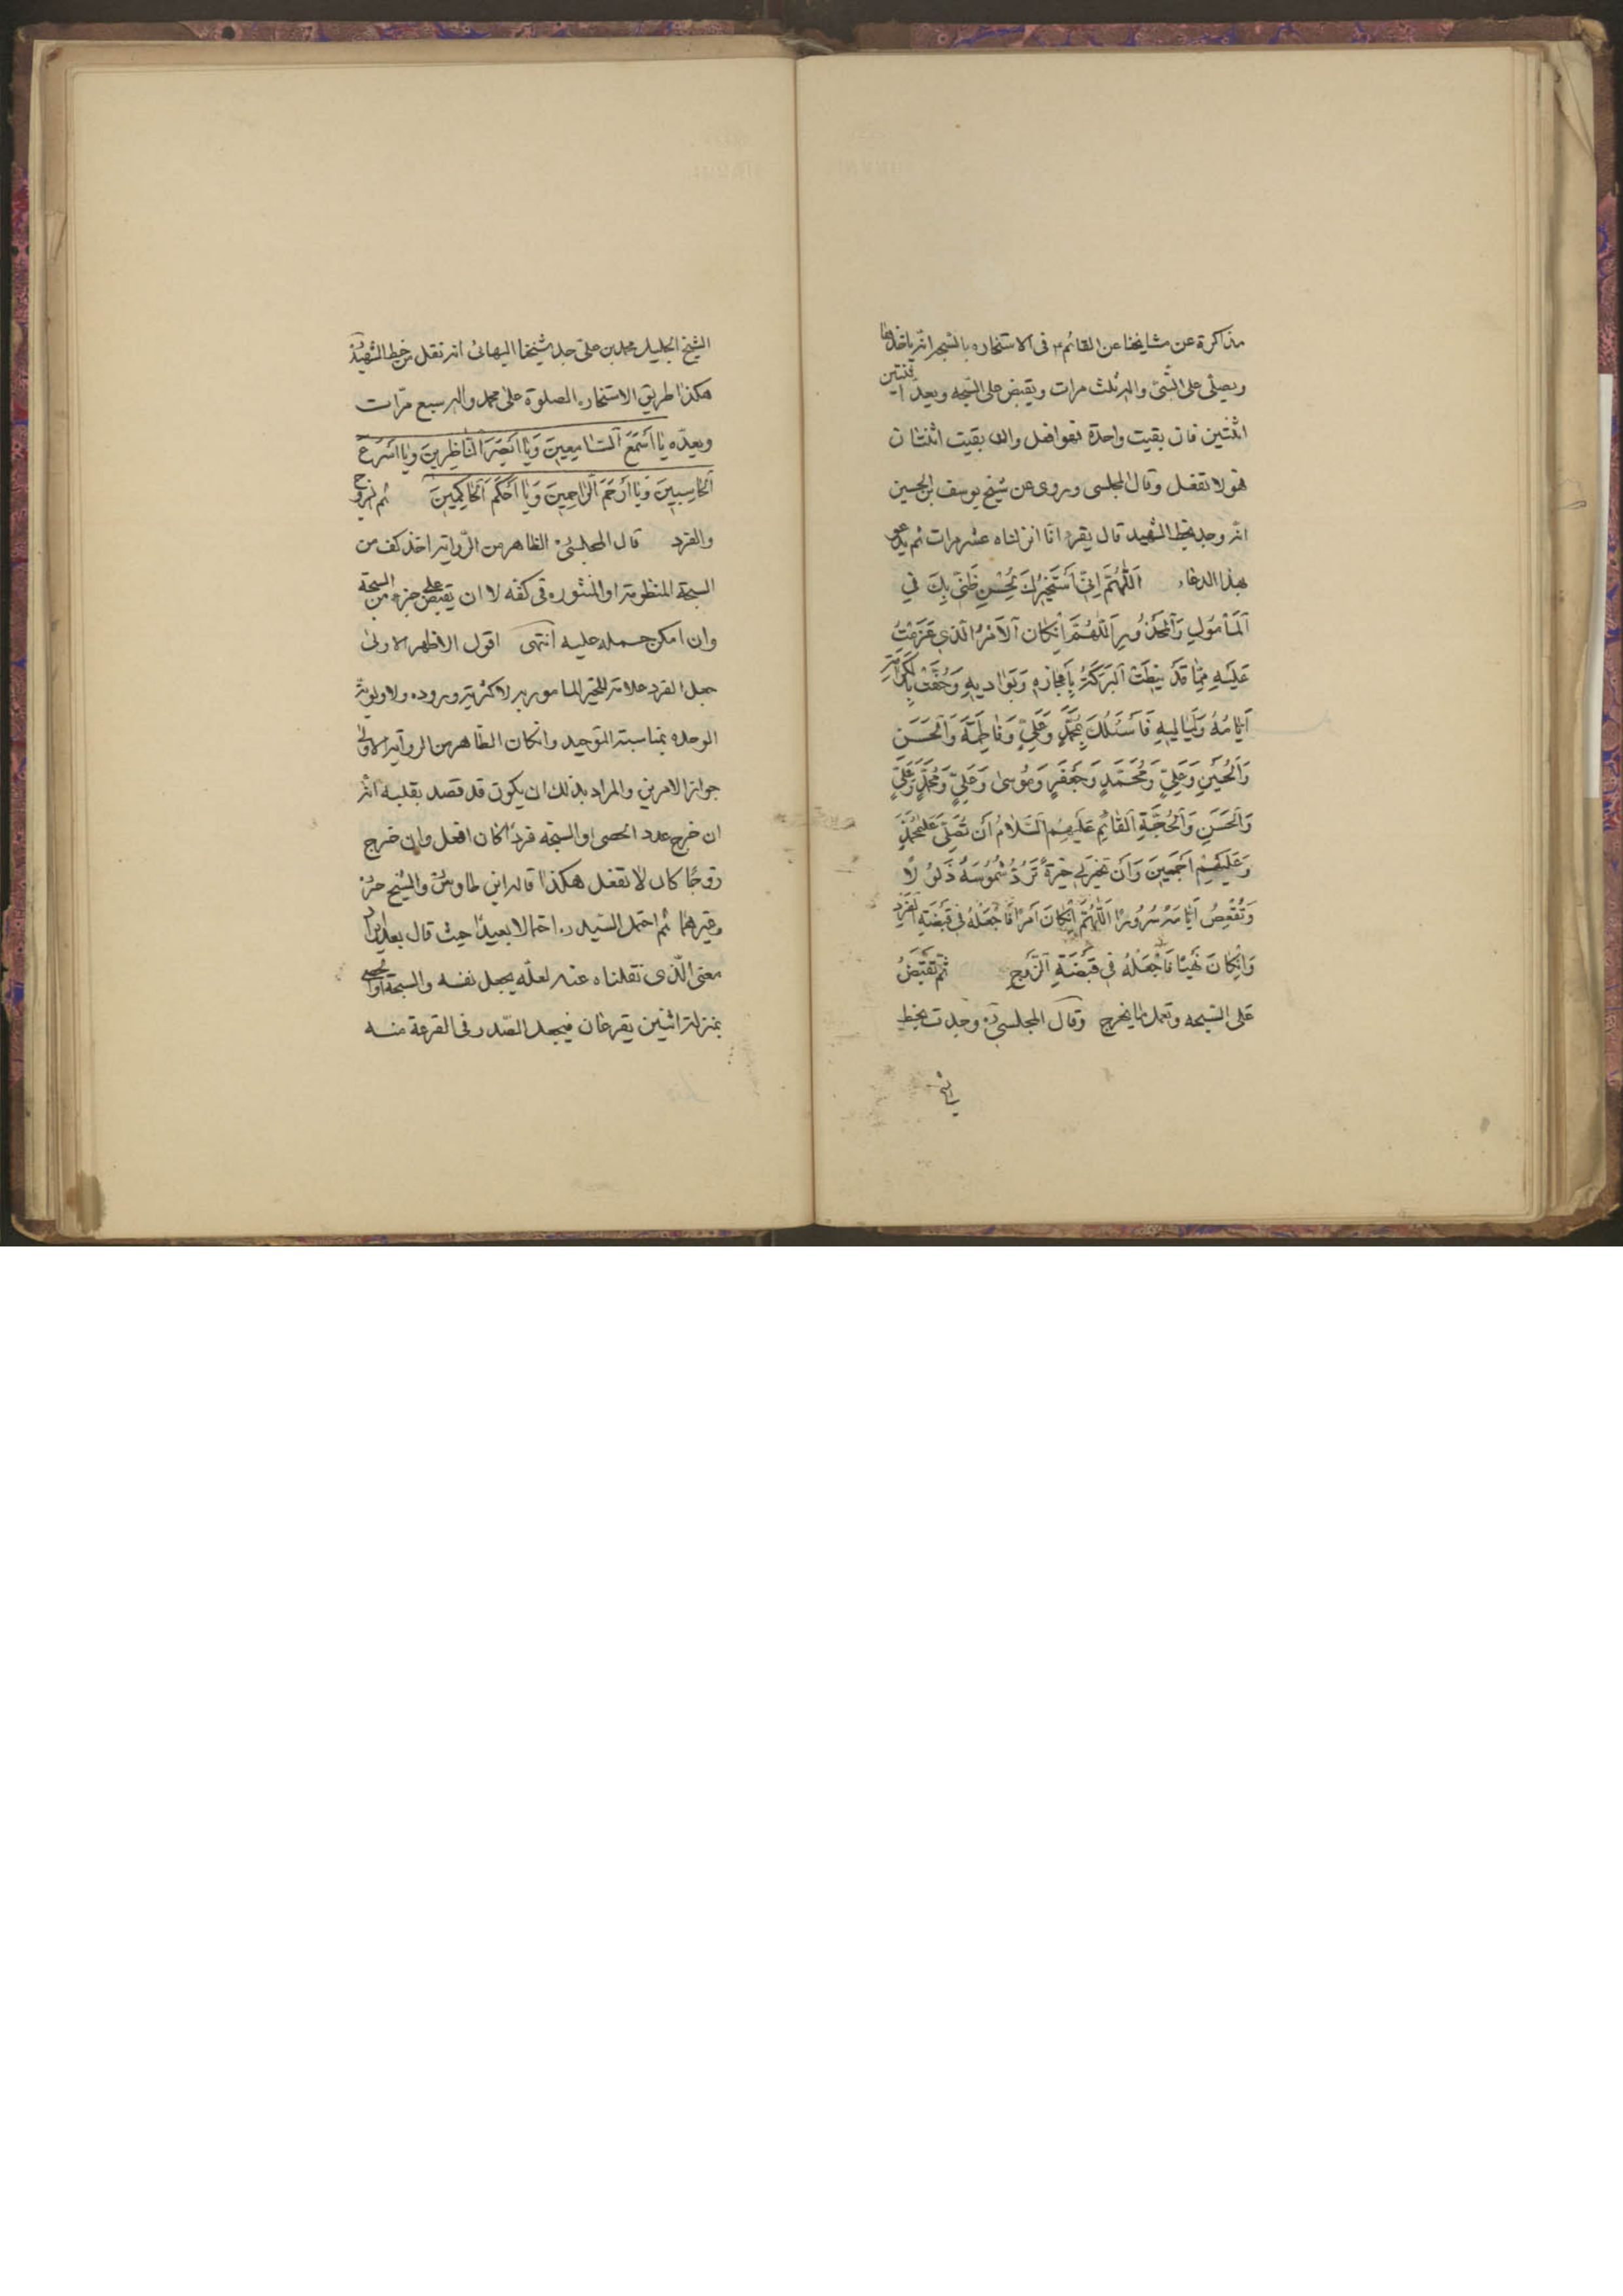 مذاكرة عن مشايخنا عن القائم ع فى الاستخاره بالسبحه انه ياخذها
ويصلى على النبى واله ثلث مرات ويقبض على السبحه ويعد اثنتين
اثنتين فان بقيت واحدة فهو افعل وان بقيت اثنتان
فهو لا تفعل وقال المجلسى وروى عن شيخ يوسف بن الحسين
انه وجد بخط الشهيد قال يقرء انا انزلناه عشر مرات ثم يدعو
بهذا الدعاء اَللّٰهُمَّ اِنّى اَسْتَخيرُكَ لِحُسْنِ ظَنّى بِكَ فِي
اَلْمَأْمُولِ وَاَلْمَحْذُورِ اَللّٰهُمَّ اِنْكانَ اَلْاَمْرُ الَّذى عَزَمْتُ
عَلَيْهِ مِمّا قَدْ نيطَتْ اَلْبَرَكَةُ بِاَعْجازِهِ وَبَوادِيهِ وَحُفَّتْ بِالْكَرامَةِ
اَيّامُهُ وَلَياليهِ فَاَسْئَلُكَ بِمُحَمَّدٍ وَعَلِىٍّ وَفاطِمَةَ وَالْحَسَنِ
وَالْحُسَيْنِ وَعَلِىٍّ وَمُحَمَّدٍ وَجَعْفَرٍ وَمُوسىٰ وَعَلِىٍّ وَمُحَمَّدٍ وَعَلِىٍّ
وَالْحَسَنِ وَالْحُجَّةِ الْقائِمِ عَلَيْهِمُ السَّلامُ اَنْ تُصَلِّىَ عَلىٰ مُحَمَّدٍ
وَعَلَيْهِمْ اَجْمَعينَ وَاَنْ تَخيرَ لى خِيَرَةً تَرُدُّ شُمُوسَهُ ذَلُولًا
وَتَقْعِصُ اَيّامَهُ سُرُورًا اَللّٰهُمَّ اِنْكانَ اَمْرًا فَاجْعَلْهُ فى قَبْضَةِ الْفَرْدِ
وَاِنْكانَ نَهْيًا فَاجْعَلْهُ فى قَبْضَةِ الزَّوْجِ ثُمَّ تَقْبِضُ
على السبحه وتعمل بما يخرج وقال المجلسى ره وجدت بخط
الشيخ الجليل محمد بن على جد شيخنا البهائى انه نقل من خط الشهيد
هكذا طريق الاستخاره الصلوة على محمد واله سبع مرّات
وبعده يا اَسْمَعَ السّامِعينَ وَيا اَبْصَرَ النّاظِرينَ وَيا اَسْرَعَ
الْحاسِبينَ وَيا اَرْحَمَ الرّاحِمينَ وَيا اَحْكَمَ الْحاكِمينَ ثم الزوج
والفرد قال المجلسى ره الظاهر من الرّواية اخذ كف من
السبحة المنظومة او المنثوره فى كفه لا ان يقبض على جزء من السبحة
وان امكن حمله عليه انتهى اقول الاظهر الاولى
جعل الفرد علامة للخير المامور به لاكثرية وروده ولاولوية
الوحده بمناسبة التوحيد وانكان الظاهر من الرواية الاولى
جواز الامرين والمراد بذلك ان يكون قد قصد بقلبه انه
ان خرج عدد الحصى او السبحه فردًا كان افعل وان خرج
زوجًا كان لا تفعل هكذا قاله ابن طاوس والشيخ حر
وغيرهما ثم احتمل السيد ره احتمالا بعيدًا حيث قال بعد ايراد
معنى الّذى نقلناه عنه لعلّه يجعل نفسه والسبحة او الحصى
بمنزلة اثنين يقرعان فيجعل الصّدر فى القرعة منه